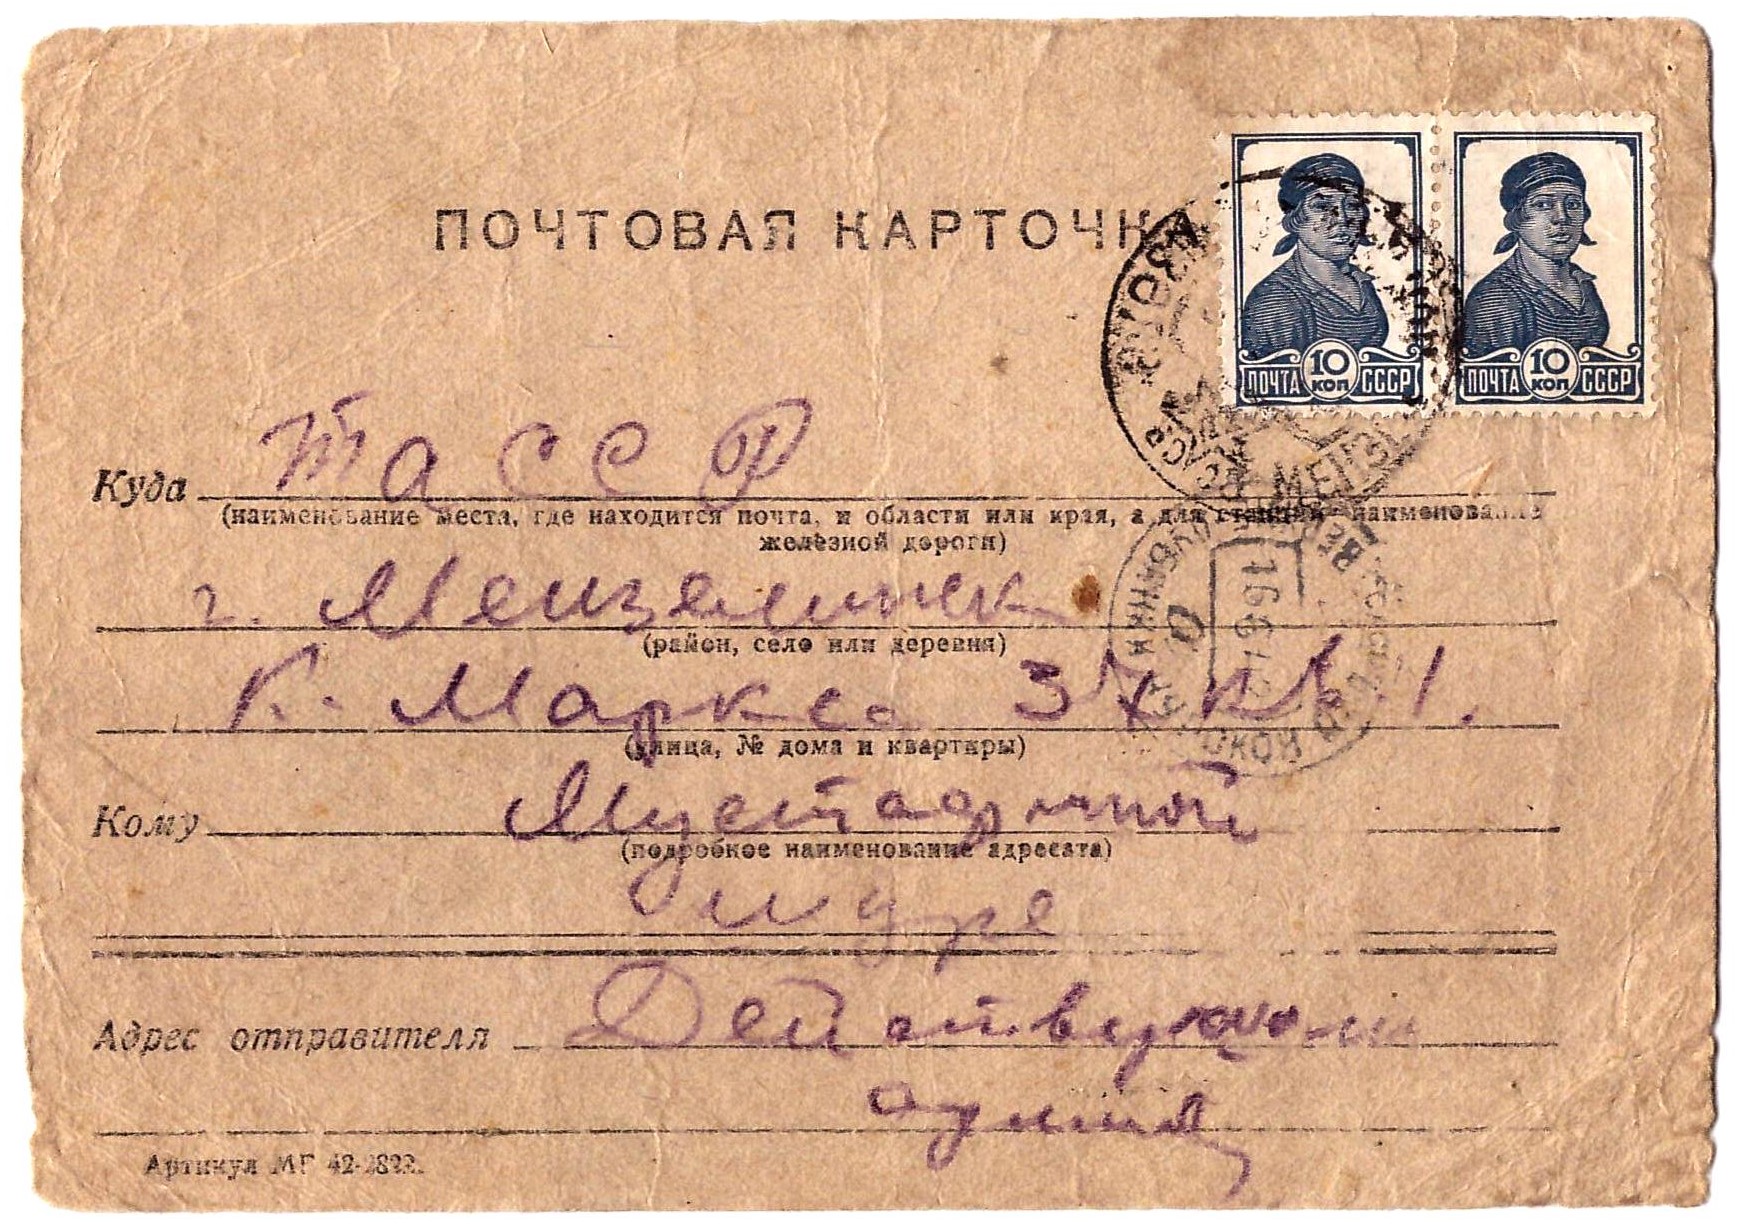 ПОЧТОВАЯ КАРТОЧКА
10 КОП
ПОЧТА СССР
10 КОП
ПОЧТА СССР
Куда ТАССР
(наименование места, где находится почта, и области или края, а для станций наименование
железной дороги)
г. Мензелинск
(район, село или деревня)
К. Маркса 34 кв. 1.
(улица, № дома и квартиры)
Кому Мустафиной
(подробное наименование адресата)
Адрес отправителя Действующая
армия
Артикул МГ 42-2822.